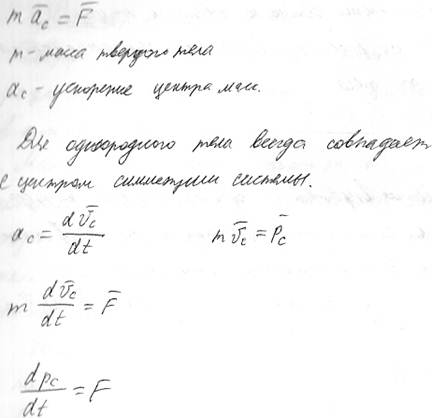 m ā_c = F̄
m - масса твердого тела
a_c - ускорение центра масс.
Для однородного тела всегда совпадает
с центром симметрии системы.
a_c = dv̄_c/dt    m v̄_c = p̄_c
m dv̄_c/dt = F̄
dp_c/dt = F